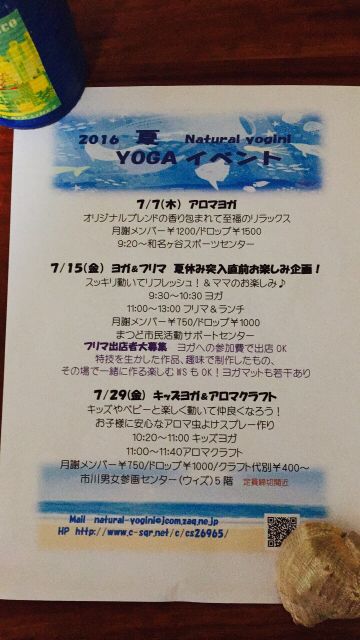 2016 夏 Natural yogini
YOGA イベント
7/7(木) アロマヨガ
オリジナルブレンドの香り包まれて至福のリラックス
月謝メンバー¥1200/ドロップ¥1500
9:20～和名ヶ谷スポーツセンター
7/15(金) ヨガ&フリマ 夏休み突入直前お楽しみ企画！
スッキリ動いてリフレッシュ！&ママのお楽しみ♪
9:30～10:30 ヨガ
11:00～13:00 フリマ&ランチ
月謝メンバー¥750/ドロップ¥1000
まつど市民活動サポートセンター
フリマ出店者大募集 ヨガへの参加費で出店OK
特技を生かした作品、趣味で制作したもの、
その場で一緒に作る楽しむWSもOK！ヨガマットも若干あり
7/29(金) キッズヨガ&アロマクラフト
キッズやベビーと楽しく動いて仲良くなろう！
お子様に安心なアロマ虫よけスプレー作り
10:20～11:00 キッズヨガ
11:00～11:40アロマクラフト
月謝メンバー¥750/ドロップ¥1000/クラフト代別¥400～
市川男女参画センター(ウィズ)5階 定員締切間近
Mail natural-yogini@jcom.zaq.ne.jp
HP http://www.c-sqr.net/c/cs26965/